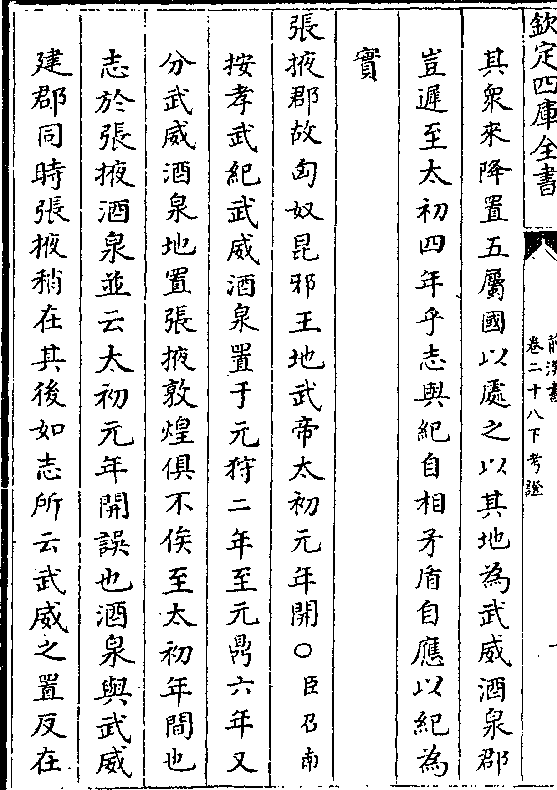 欽定四庫全書
前漢書
卷二十八下考證
其衆來降置五屬國以處之以其地為武威酒泉郡
豈遲至太初四年乎志與紀自相矛盾自應以紀為
實
張掖郡故匈奴昆邪王地武帝太初元年開○臣召南
按孝武紀武威酒泉置于元狩二年至元鼎六年又
分武威酒泉地置張掖敦煌俱不俟至太初年間也
志於張掖酒泉並云太初元年開誤也酒泉與武威
建郡同時張掖稍在其後如志所云武威之置反在